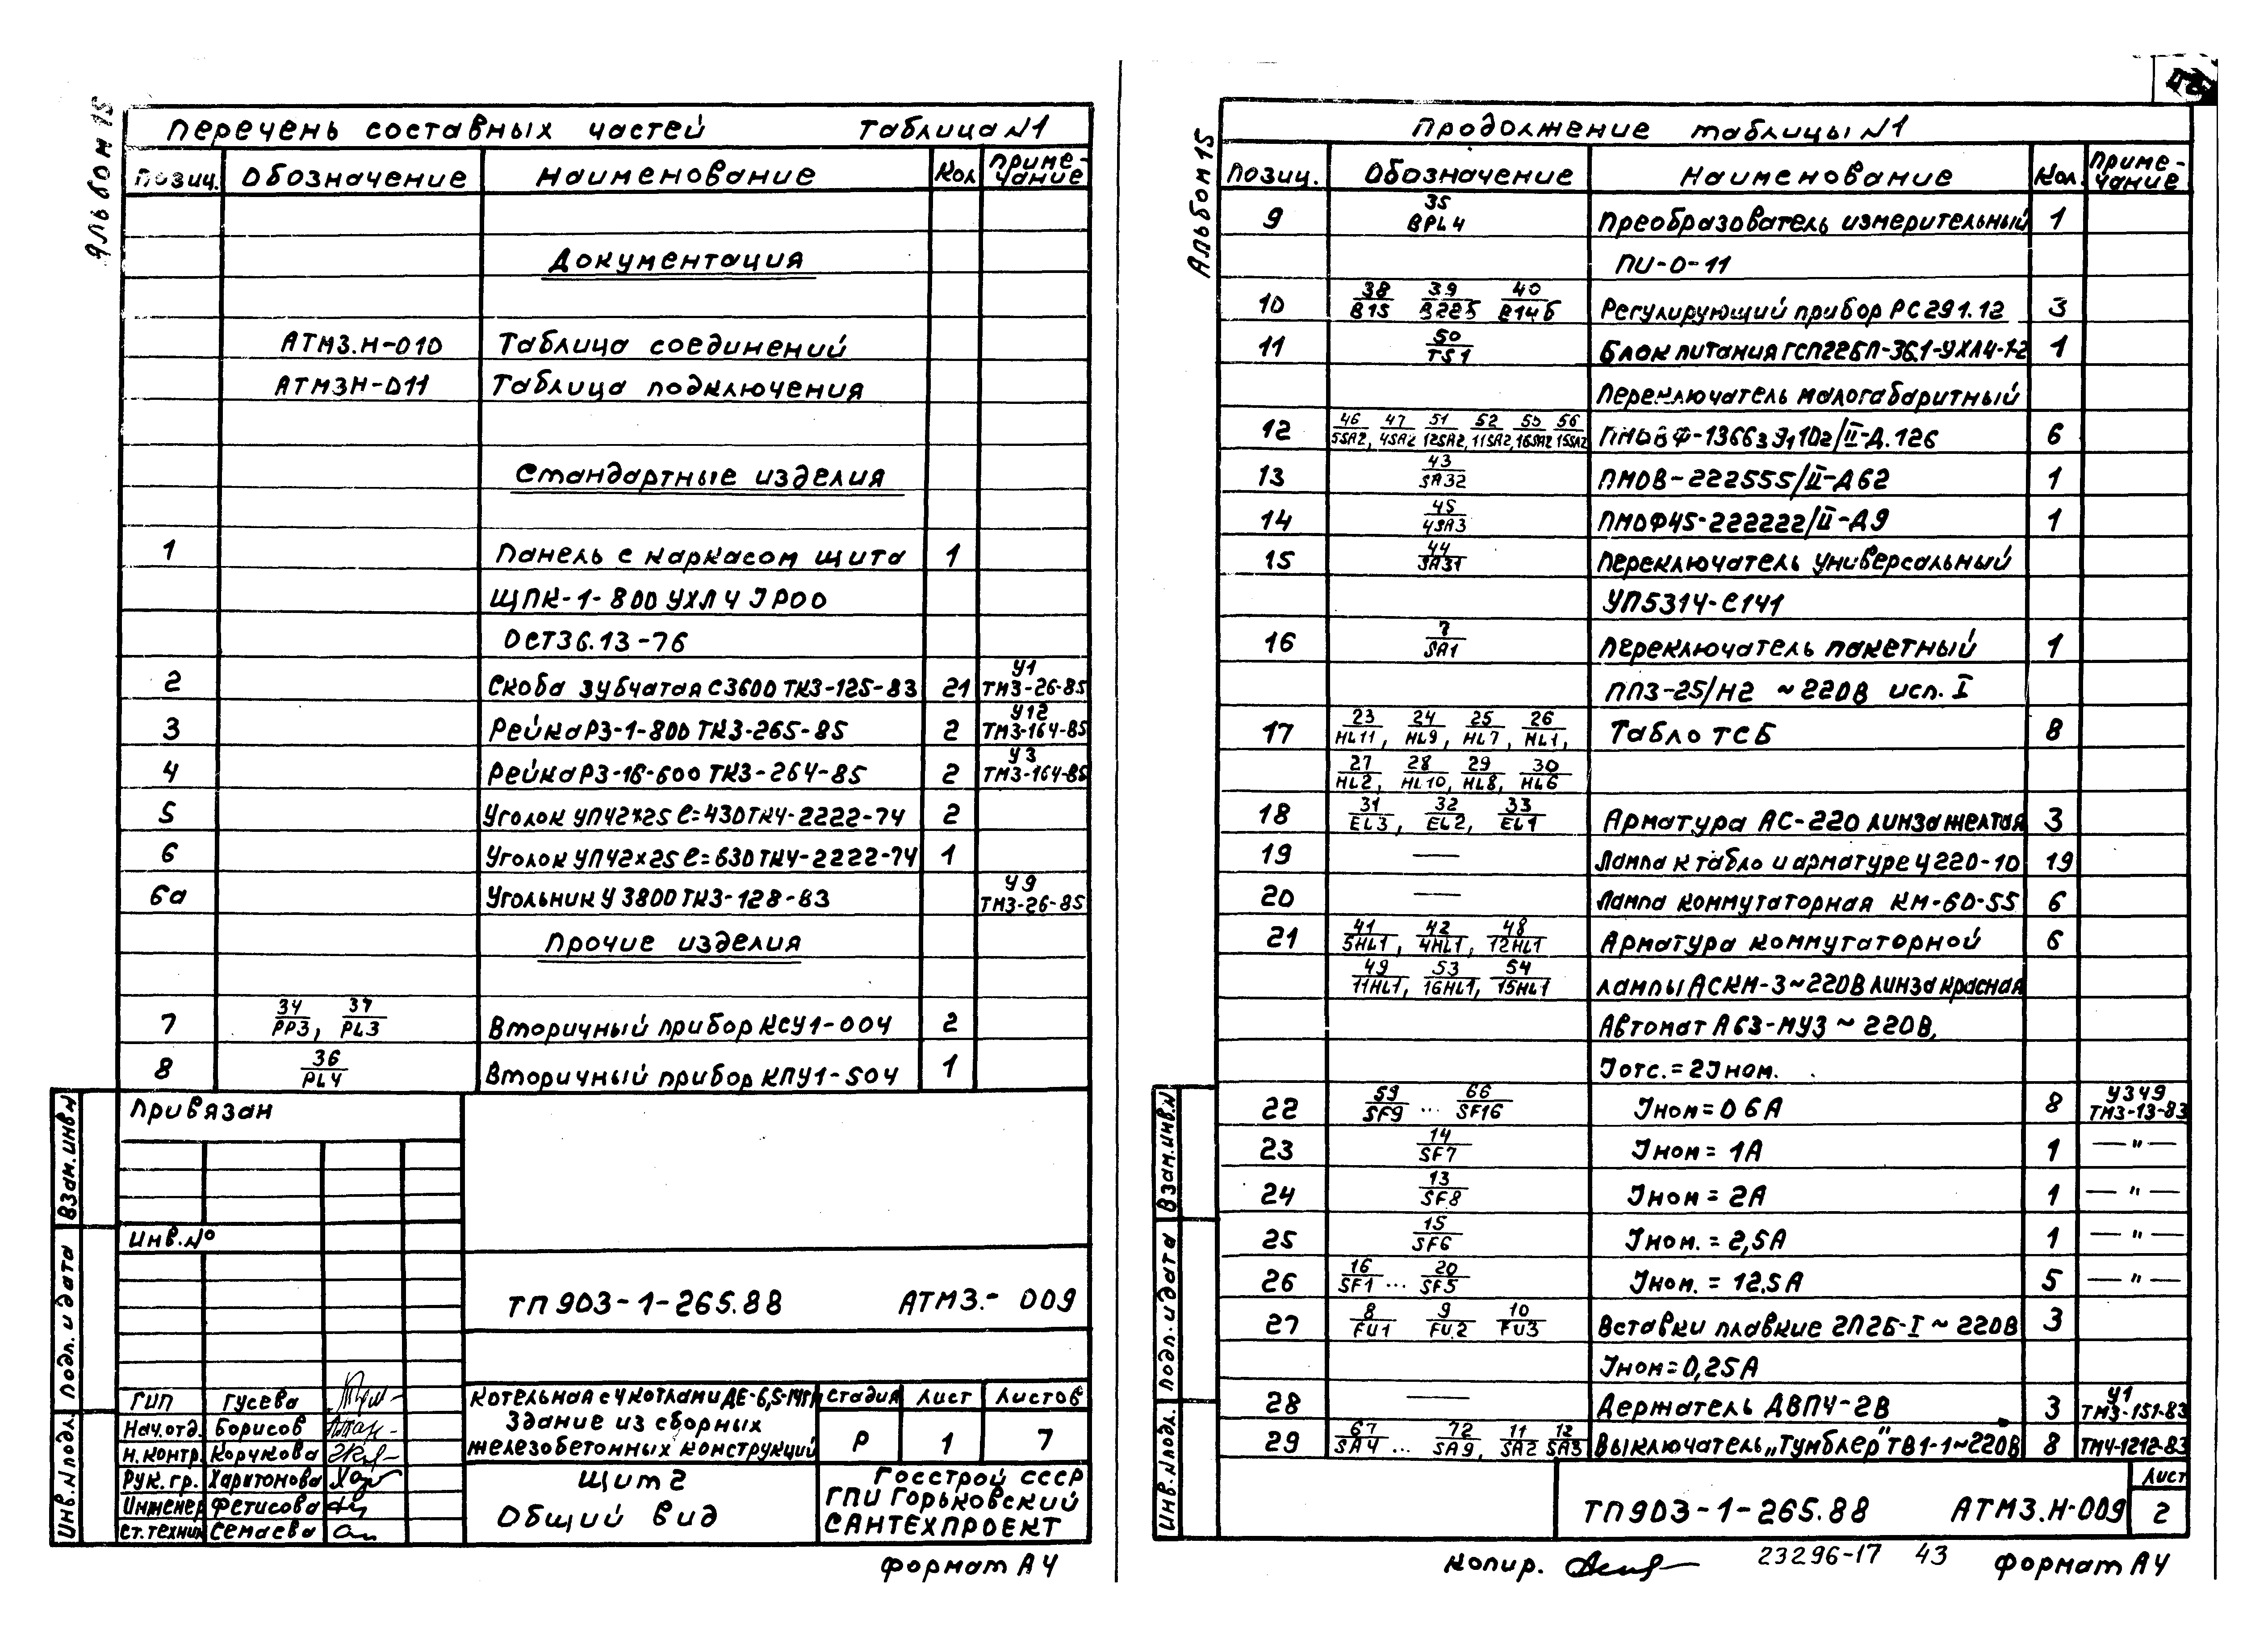 Альбом 15
Перечень составных частей Таблица N1
Позиц. Обозначение Наименование Кол Приме-чание
Документация
АТМ3.Н-010 Таблица соединений
АТМ3Н-011 Таблица подключения
Стандартные изделия
1 Панель с каркасом щита 1
ЩПК-1-800 УХЛ4 IP00
ОСТ36.13-76
2 Скоба зубчатая С3600 ТК3-125-83 21 У1 ТМ3-26-85
3 Рейка Р3-1-800 ТК3-265-85 2 У12 ТМ3-164-85
4 Рейка Р3-16-600 ТК3-264-85 2 У3 ТМ3-164-85
5 Уголок УП42×25 ℓ=430 ТК4-2222-74 2
6 Уголок УП42×25 ℓ=630 ТК4-2222-74 1
6а Угольник У3800 ТК3-128-83 У9 ТМ3-26-85
Прочие изделия
7 34/PP3, 37/PL3 Вторичный прибор КСУ1-004 2
8 36/PL4 Вторичный прибор КПУ1-504 1
Привязан
Инв.№
ТП903-1-265.88 АТМ3.- 009
Котельная с 4 котлами ДЕ-6,5-14ГМ
Здание из сборных
железобетонных конструкций
Стадия Лист Листов
Р 1 7
ГИП Гусева
Нач.отд. Борисов
Н.контр. Корчкова
Рук. гр. Харитонова
Инженер Фетисова
Ст.техник Семаева
Щит 2
Общий вид
Госстрой СССР
ГПИ Горьковский
САНТЕХПРОЕКТ
Взам.инв.N
Подп. и дата
Инв.N подл.
Формат А4
Альбом 15
Продолжение таблицы N1
Позиц. Обозначение Наименование Кол. Приме-чание
9 35/BPL4 Преобразователь измерительный 1
ПИ-0-11
10 38/В15 39/В22Б 40/В14Б Регулирующий прибор РС291.12 3
11 50/TS1 Блок питания ГСП22БП-36.1-УХЛ4-1-2 1
Переключатель малогабаритный
12 46/5SA2, 47/4SA2 51/12SA2, 52/11SA2, 55/16SA2 56/15SA2 /II-Д.126 6
13 43/SA32 ПМОВ-222555/II-Д62 1
14 45/4SA3 ПМОФ45-222222/II-Д9 1
15 44/SA31 Переключатель универсальный
УП5314-С141
16 7/SA1 Переключатель пакетный 1
ПП3-25/Н2 ~220В исп. I
17 23/HL11, 24/HL9, 25/HL7, 26/HL1, Табло ТСБ 8
27/HL2, 28/HL10, 29/HL8, 30/HL6
18 31/EL3, 32/EL2, 33/EL1 Арматура АС-220 линза желтая 3
19 — Лампа к табло и арматуре Ц220-10 19
20 — Лампа коммутаторная КМ-60-55 6
21 41/5HL1, 42/4HL1, 48/12HL1 Арматура коммутаторной 6
49/11HL1, 53/16HL1, 54/15HL1 лампы АСКМ-3~220В линза красная
Автомат А63-МУ3 ~ 220В,
Iотс.=2Iном.
22 59/SF9 ... 66/SF16 Iном=0 6А 8 У349 ТМ3-13-83
23 14/SF7 Iном= 1А 1 — " —
24 13/SF8 Iном = 2А 1 — " —
25 15/SF6 Iном. = 2,5А 1 — " —
26 16/SF1 ... 20/SF5 Iном. = 12.5А 5 — " —
27 8/FU1 9/FU2 10/FU3 Вставки плавкие 2П2Б-I ~ 220В 3
Iном=0,25А
28 — Держатель ДВП4-2В 3 У1 ТМ3-151-83
29 67/SA4 ... 72/SA9, 11/SA2 12/SA3 Выключатель „Тумблер" ТВ1-1~220В 8 ТМ4-1212-83
ТП903-1-265.88 АТМ3.Н-009
Лист
2
Взам.инв.N
Подп. и дата
Инв.N подл.
Копир. 23296-17 43 Формат А4